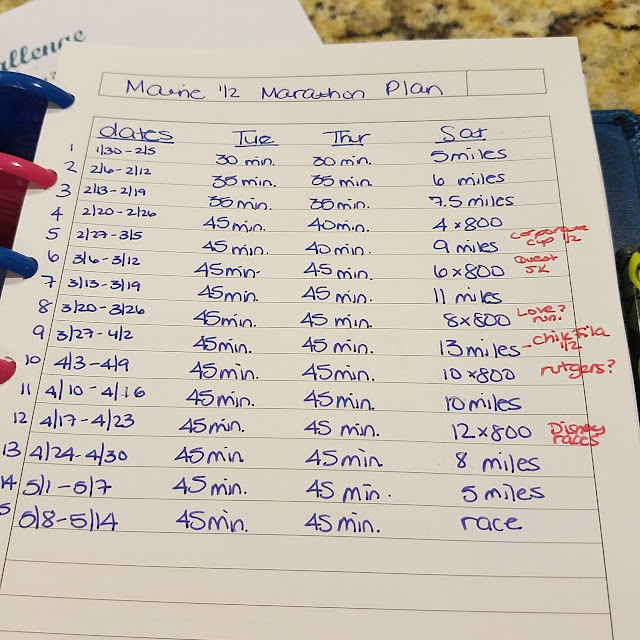 allenge
Marine 1/2 Marathon Plan
dates Tue Thr Sat
1 1/30-2/5 30 min. 30 min. 5 miles
2 2/6-2/12 35 min. 35 min. 6 miles
3 2/13-2/19 35 min. 35 min. 7.5 miles
4 2/20-2/26 45 min. 40 min. 4x800
5 2/27-3/5 45 min. 40 min. 9 miles corporate cup 1/2
6 3/6-3/12 45 min. 45 min. 6x800 Quest 5K
7 3/13-3/19 45 min. 45 min. 11 miles
8 3/20-3/26 45 min. 45 min. 8x800 Love? run?
9 3/27-4/2 45 min. 45 min. 13 miles - Chik Fila 1/2
10 4/3-4/9 45 min. 45 min. 10x800 rutgers?
11 4/10-4/16 45 min. 45 min. 10 miles
12 4/17-4/23 45 min. 45 min. 12x800 Disney races
13 4/24-4/30 45 min. 45 min. 8 miles
14 5/1-5/7 45 min. 45 min. 5 miles
5 5/8-5/14 45 min. 45 min. race